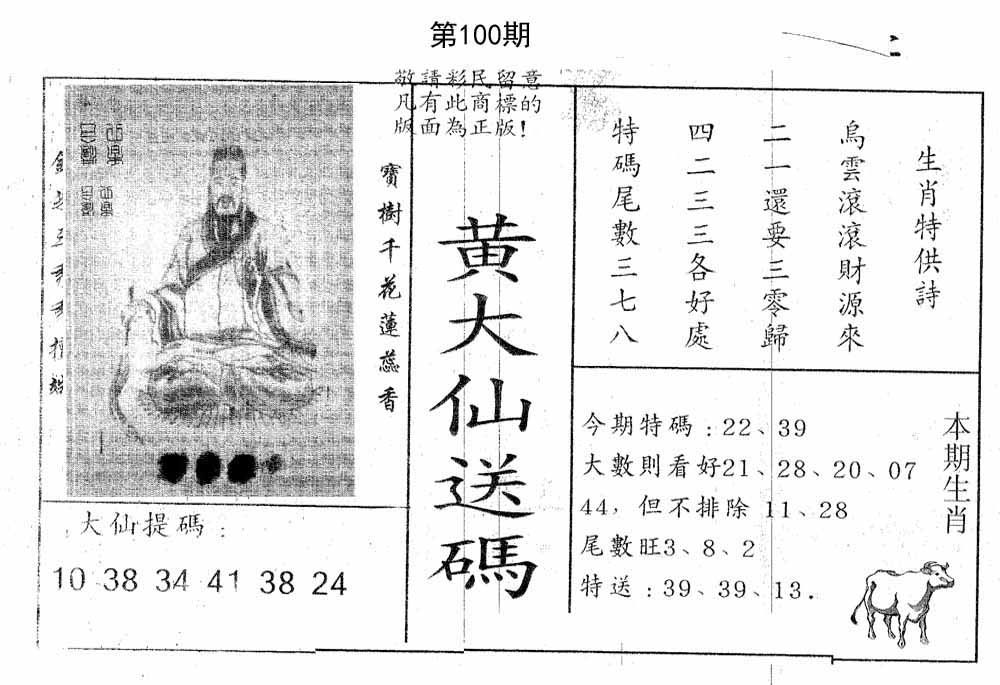 第100期
敬請彩民留意
凡有此商標的
版面為正版!
生肖特供詩
烏雲滾滾財源來
二一還要三零歸
四二三三各好處
特碼尾數三七八
黃大仙送碼
寶樹千花蓮蕊香
大仙提碼：
10 38 34 41 38 24
本期生肖
今期特碼：22、39
大數則看好21、28、20、07
44，但不排除 11、28
尾數旺3、8、2
特送：39、39、13．